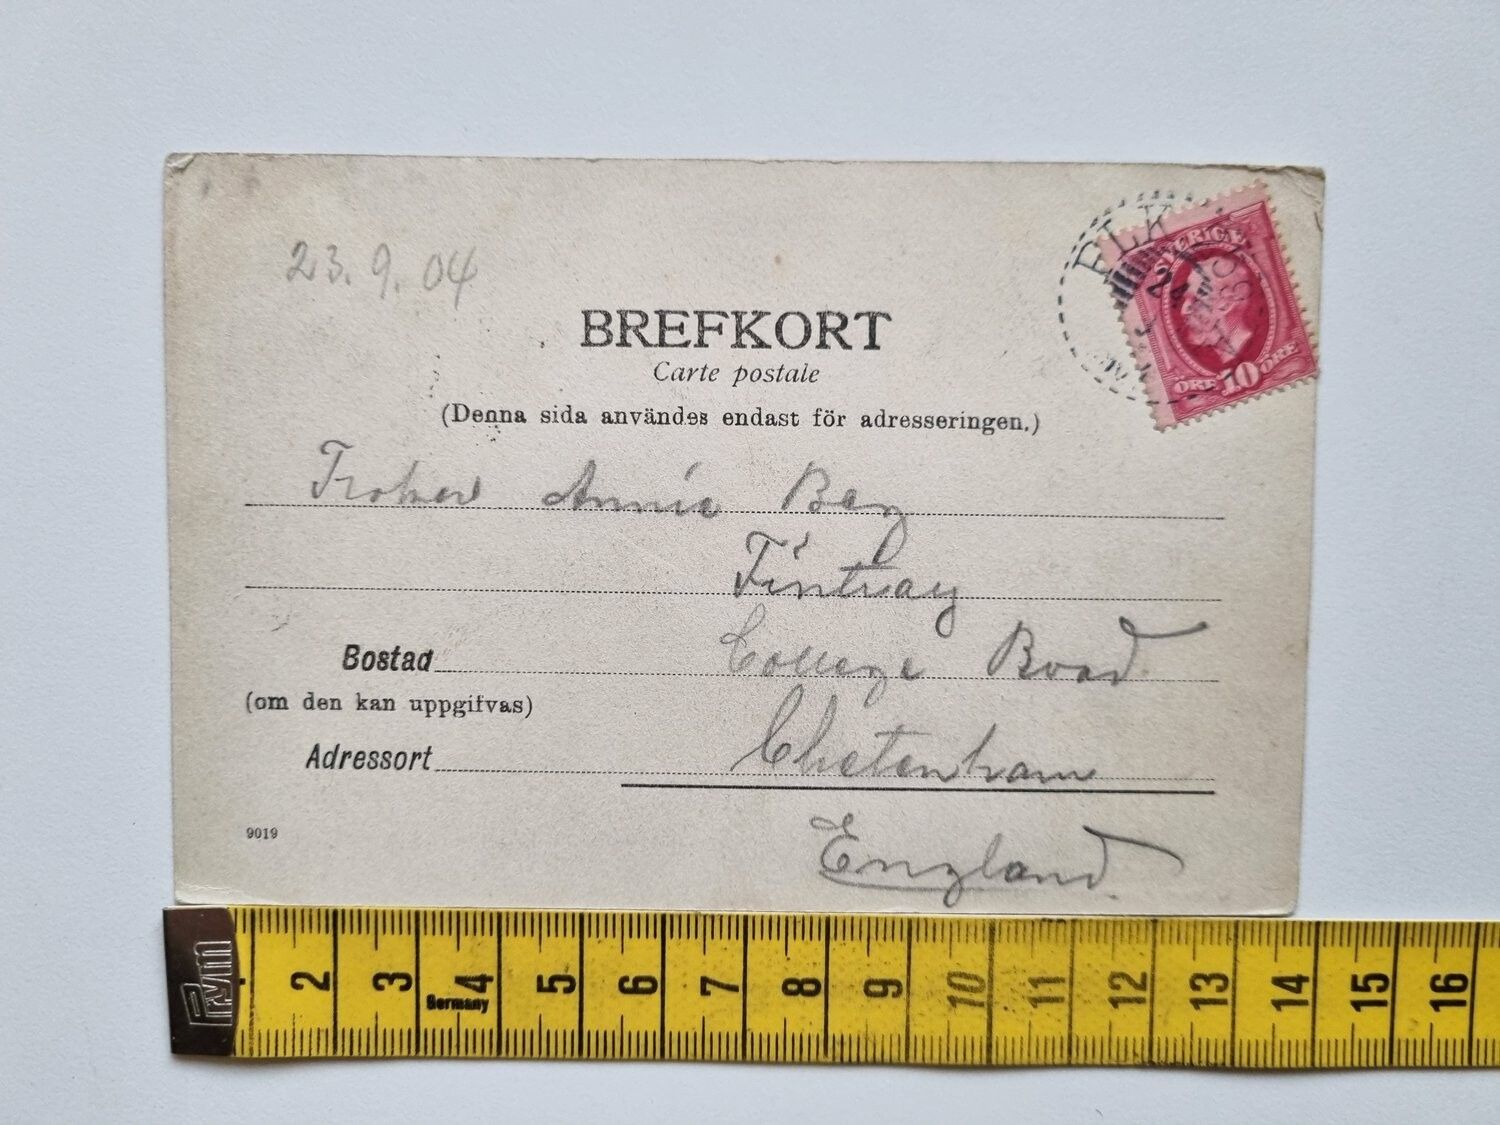 23.9.04
SVERIGE
ÖRE 10 ÖRE
BREFKORT
Carte postale
(Denna sida användes endast för adresseringen.)
Annie Berg
Fintray
College Road
Bostad
(om den kan uppgifvas)
Chetenham
Adressort
9019
England
Prym
2 3 4 5 6 7 8 9 10 11 12 13 14 15 16
Germany